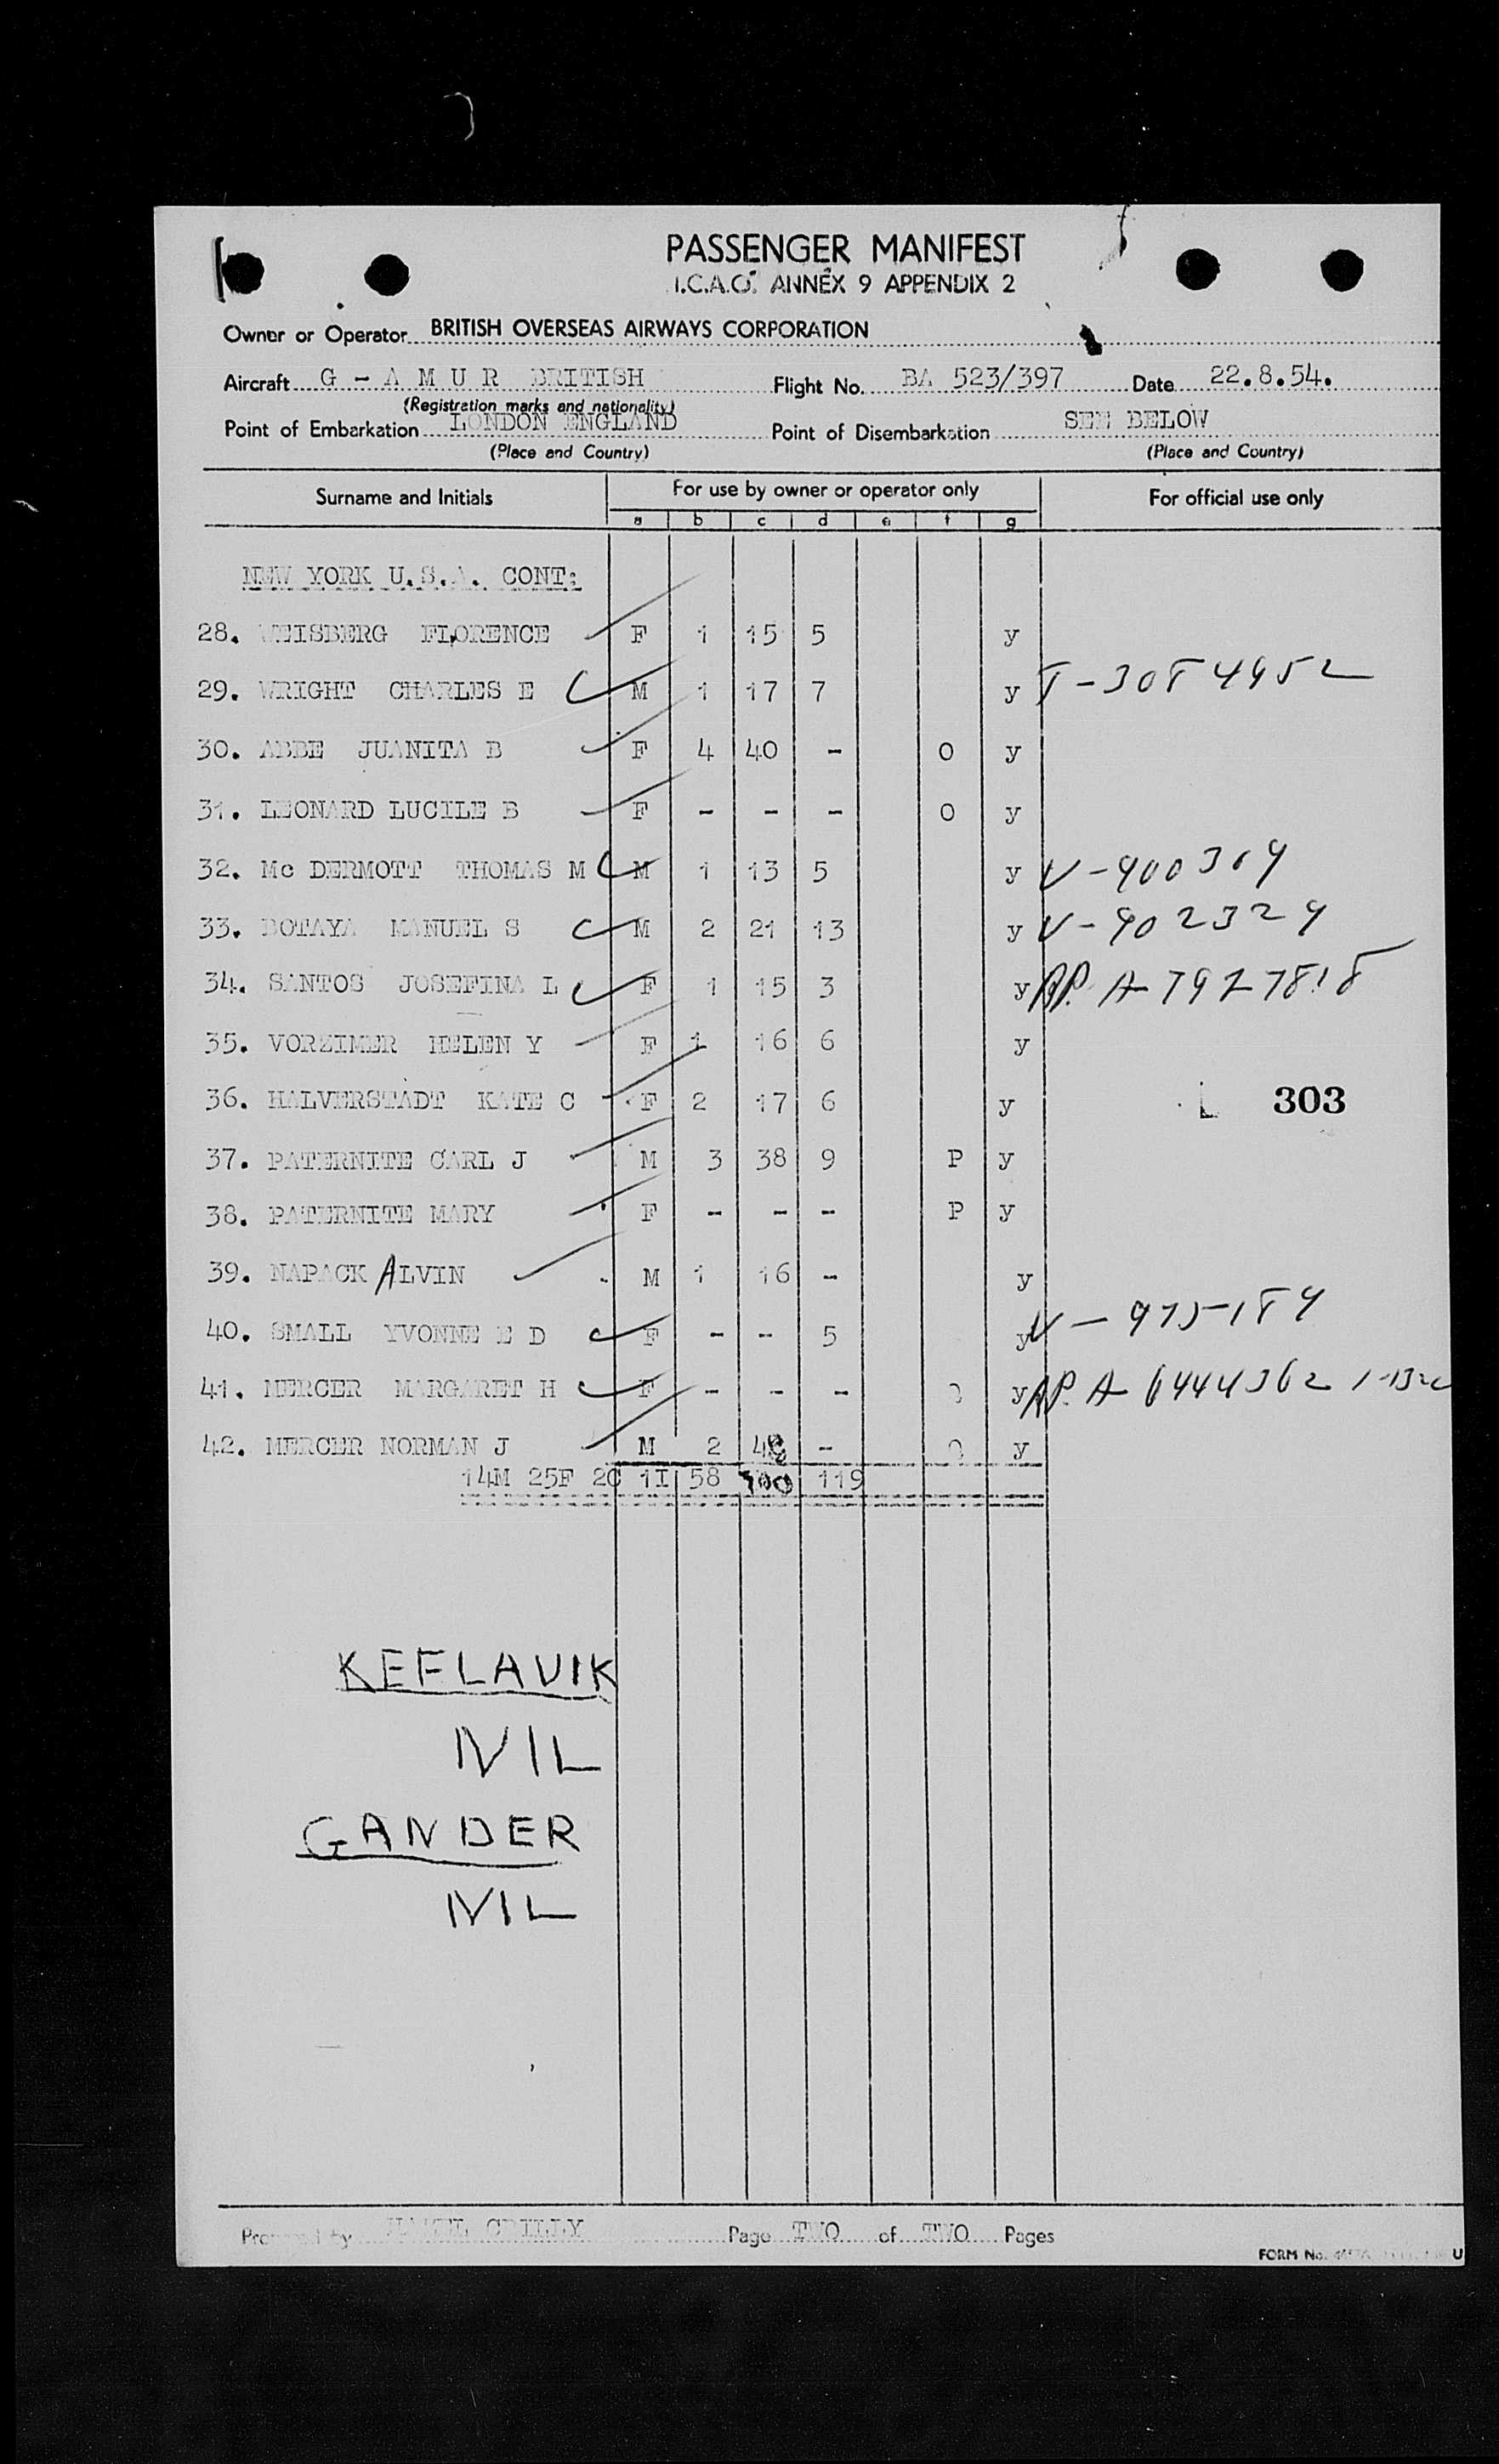 PASSENGER MANIFEST
I.C.A.O. ANNEX 9 APPENDIX 2
Owner or Operator BRITISH OVERSEAS AIRWAYS CORPORATION
Aircraft G - A M U R BRITISH Flight No. BA 523/397 Date 22.8.54.
(Registration marks and nationality)
Point of Embarkation LONDON ENGLAND Point of Disembarkation SEE BELOW
(Place and Country) (Place and Country)
Surname and Initials For use by owner or operator only For official use only
a b c d e f g
NEW YORK U.S.A. CONT:
28. WEISBERG FLORENCE F 1 15 5 y
29. WRIGHT CHARLES E M 1 17 7 y T-3084952
30. ABBE JUANITA B F 4 40 - O y
31. LEONARD LUCILE B F - - - O y
32. Mc DERMOTT THOMAS M M 1 13 5 y V-900319
33. BOTAYA MANUEL S M 2 21 13 y V-902329
34. SANTOS JOSEFINA L F 1 15 3 y RP. A-7927818
35. VORZIMER HELEN Y F 1 16 6 y
36. HALVERSTADT KATE C F 2 17 6 y
303
37. PATERNITE CARL J M 3 38 9 P y
38. PATERNITE MARY F - - - P y
39. NAPACK ALVIN M 1 16 - y
40. SMALL YVONNE E D F - - 5 y V-975189
41. MERCER MARGARET H F - - - Q y RP. A-6444362
42. MERCER NORMAN J M 2 - Q y
14M 25F 2C 1I 58 119
KEFLAVIK
NIL
GANDER
NIL
Prepared by Page TWO of TWO Pages
FORM No. U